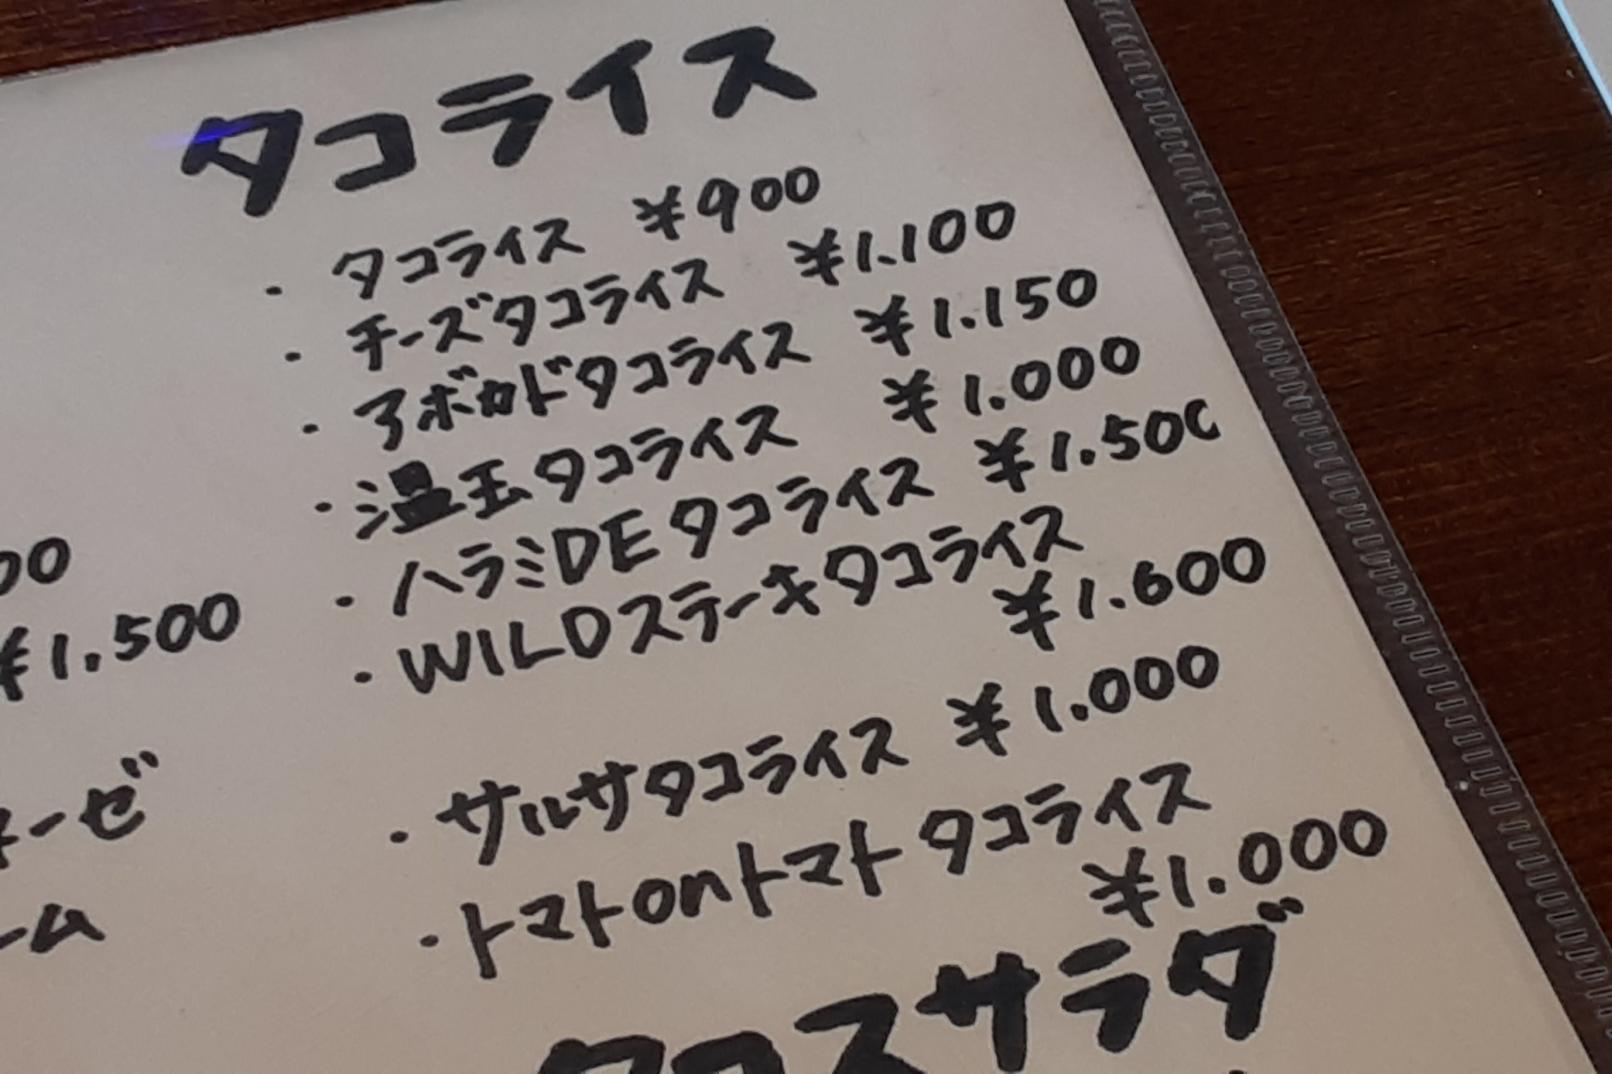 タコライス
・タコライス ¥900
・チーズタコライス ¥1.100
・アボカドタコライス ¥1.150
・温玉タコライス ¥1.000
・ハラミDEタコライス ¥1.500
・WILDステーキタコライス
¥1.600
・サルサタコライス ¥1.000
・トマトonトマトタコライス
¥1.000
タコスサラダ
00
¥1.500
ーゼ
ーム